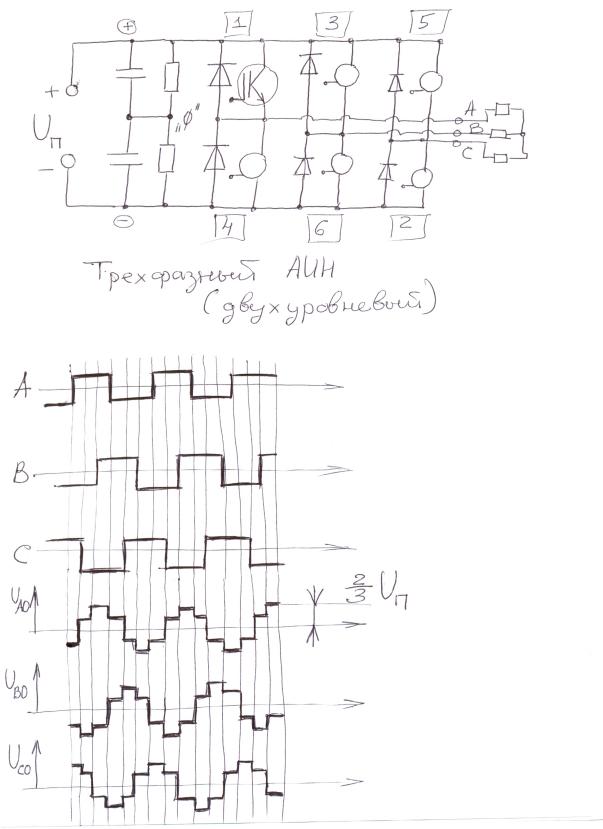 ⊕ 1 3 5
+
Uп
„Ф"
A
B
C
-
⊖ 4 6 2
Трехфазный АИН
(двухуровневый)
A
B
C
UAO
2/3 Uп
UBO
UCO